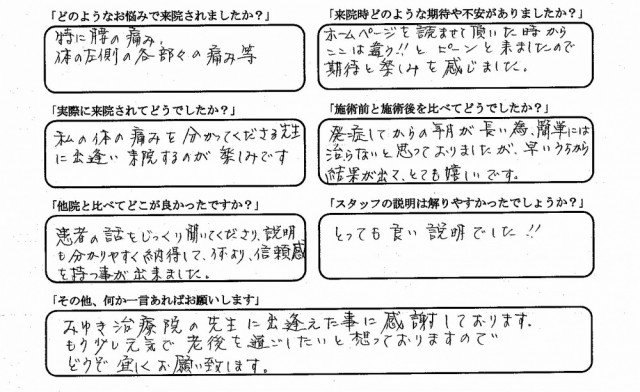 「どのようなお悩みで来院されましたか？」
特に腰の痛み、
体の左側の各部々の痛み等
「来院時どのような期待や不安がありましたか？」
ホームページを読ませて頂いた時から
ここは違う!!と ピーンと来ましたので
期待と楽しみを感じました。
「実際に来院されてどうでしたか？」
私の体の痛みを分かってくださる先生
に出逢い 来院するのが 楽しみです
「施術前と施術後を比べてどうでしたか？」
発症してからの年月が長い為、簡単には
治らないと思っておりましたが、早いうちから
結果が出て、とても嬉しいです。
「他院と比べてどこが良かったですか？」
患者の話をじっくり聞いてくださり、説明
も分かりやすく納得して、体より、信頼感
を持つ事が出来ました。
「スタッフの説明は解りやすかったでしょうか？」
とっても良い説明でした!!
「その他、何か一言あればお願いします」
みゆき治療院の先生に出逢えた事に感謝しております。
もう少し元気で老後を過ごしたいと想っておりますので
どうぞ宜しくお願い致します。